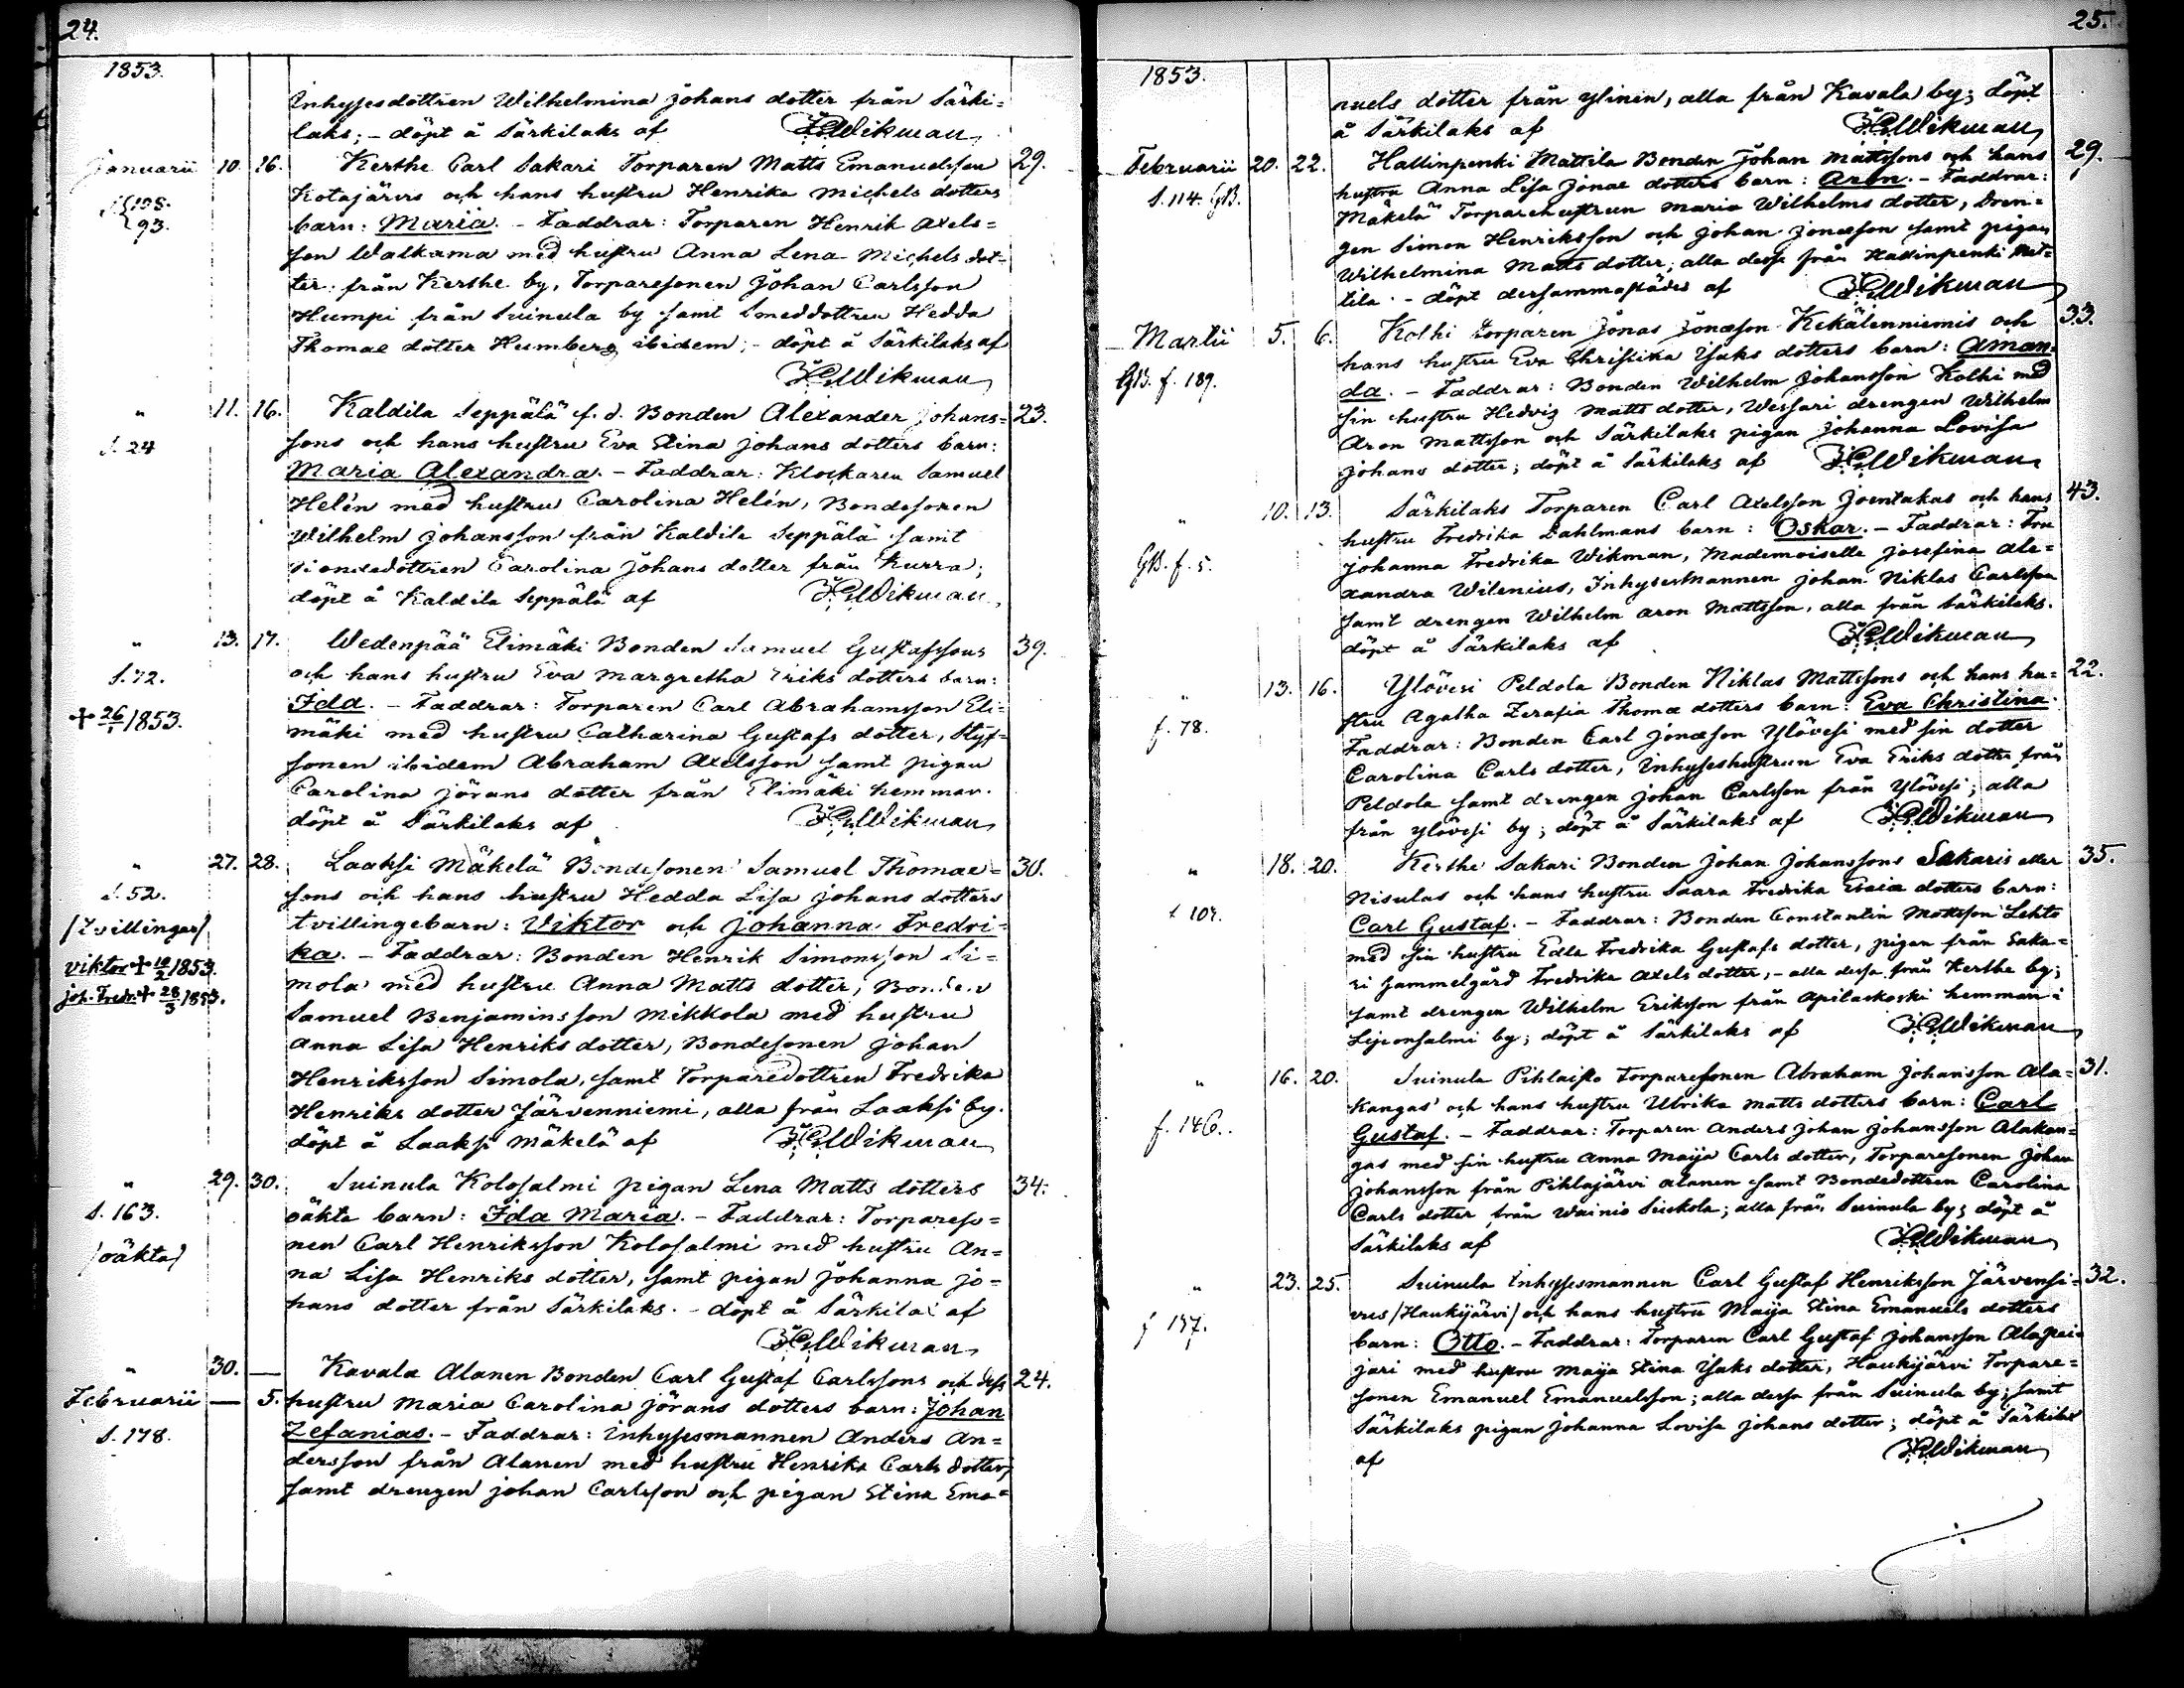 24.
1853.
Inhysesdottren Wilhelmina Johans dotter från Särki=
laks; - döpt å Särkilaks af HGWikman
Januarii 10. 16. Kerthe Carl Sakari Torparen Matts Emanuelsson 29.
Kotajärvis och hans hustru Henrika Michels dotters
93.
barn: Maria. - Faddrar: Torparen Henrik Axels=
son Walkama med hustru Anna Lena Michels dot=
ter från Kerthe by, Torparesonen Johan Carlsson
Humpi från Suinula by samt Smeddottren Hedda
Thomae dotter Humberg ibidem; - döpt å Särkilaks af
HGWikman
" 11. 16. Kaldila Seppälä f. d. Bonden Alexander Johans= 23.
S. 24
sons och hans hustru Eva Stina Johans dotters barn:
Maria Alexandra. - Faddrar: Klockaren Samuel
Helén med hustru Carolina Helén, Bondesonen
Wilhelm Johansson från Kaldila Seppälä samt
Bondedottren Carolina Johans dotter från Kurra;
döpt å Kaldila Seppälä af HGWikman
" 13. 17. Wedenpää Elimäki Bonden Samuel Gustafssons 39.
S. 72.
och hans hustru Eva Margretha Eriks dotters barn:
+ 26/1 1853.
Ida. - Faddrar: Torparen Carl Abrahamsson Eli=
mäki med hustru Catharina Gustafs dotter, Styf=
sonen ibidem Abraham Axelsson samt pigan
Carolina Jörans dotter från Elimäki hemman.
döpt å Särkilaks af HGWikman
" 27. 28. Laaksi Mäkelä Bondesonen Samuel Thomae= 30.
S. 52.
sons och hans hustru Hedda Lisa Johans dotters
/Tvillingar/
tvillingebarn: Viktor och Johanna Fredri=
Viktor + 10/2 1853.
ka. - Faddrar: Bonden Henrik Simonsson Si=
Joh. Fredr. + 28/3 1853.
mola med hustru Anna Matts dotter, Bonden
Samuel Benjaminsson Mikkola med hustru
Anna Lisa Henriks dotter, Bondesonen Johan
Henriksson Simola, samt Torparedottren Fredrika
Henriks dotter Järvenniemi, alla från Laaksi by.
döpt å Laaksi Mäkelä af HGWikman
" 29. 30. Suinula Kolosalmi pigan Lena Matts dotters 34.
S. 163.
oäkta barn: Ida Maria. - Faddrar: Torpareso=
/oäkta/
nen Carl Henriksson Kolosalmi med hustru An=
na Lisa Henriks dotter, samt pigan Johanna Jo=
hans dotter från Särkilaks. - döpt å Särkilax af
HGWikman
" 30. — Kavala Alanen Bonden Carl Gustaf Carlssons och dess 24.
Februarii — 5. hustru Maria Carolina Jörans dotters barn: Johan
S. 178.
Zefanias. - Faddrar: Inhysesmannen Anders An=
dersson från Alanen med hustru Henrika Carls dotter,
samt drengen Johan Carlsson och pigan Stina Ema=
25.
1853.
nuels dotter från Ylinen, alla från Kavala by; döpt
å Särkilaks af HGWikman
Februarii 20. 22. Hallinpenki Mattila Bonden Johan Mattssons och hans 29.
S. 114. GB.
hustru Anna Lisa Jonae dotters barn: Aron. - Faddrar:
Mäkelä Torparehustrun Maria Wilhelms dotter, Dren=
gen Simon Henriksson och Johan Jonæson samt pigan
Wilhelmina Matts dotter, alla dessa från Hallinpenki Mat=
tila. - döpt dersammastädes af HGWikman
Martii 5. 6. Kolhi Torparen Jonas Jonæson Kekälenniemis och 33.
GB. f. 189.
hans hustru Eva Christika Isaks dotters barn: Aman=
da. - Faddrar: Bonden Wilhelm Johansson Kolhi med
sin hustru Hedvig Matts dotter, Wessari drengen Wilhelm
Aron Mattsson och Särkilaks pigan Johanna Lovisa
Johans dotter; döpt å Särkilaks af HGWikman
" 10. 13. Särkilaks Torparen Carl Axelsson Joentakas och hans 43.
GB. f. 5.
hustru Fredrika Dahlmans barn: Oskar. - Faddrar: Fru
Johanna Fredrika Wikman, Mademoiselle Josefina Ale=
xandra Wilenius, Inhysesmannen Johan Niklas Carlsson
samt drengen Wilhelm Aron Mattsson, alla från Särkilaks.
döpt å Särkilaks af HGWikman
" 13. 16. Ylövesi Peldola Bonden Niklas Mattssons och hans hu= 22.
f. 78.
stru Agatha Serafia Thomæ dotters barn: Eva Christina.
Faddrar: Bonden Carl Jonæson Ylövesi med sin dotter
Carolina Carls dotter, Inhyseshustrun Eva Eriks dotter från
Peldola samt drengen Johan Carlsson från Ylövesi; alla
från Ylövesi by; döpt å Särkilaks af HGWikman
" 18. 20. Kerthe Sakari Bonden Johan Johanssons Sakaris eller 35.
Nisulas och hans hustru Saara Fredrika Esaiæ dotters barn:
Carl Gustaf. - Faddrar: Bonden Constantin Mattsson Lehto
med sin hustru Edla Fredrika Gustafs dotter, pigan från Saka=
ri gammelgård Fredrika Axels dotter, - alla dessa från Kerthe by;
samt drengen Wilhelm Eriksson från Apilaskoski hemman i
Leijonsalmi by; döpt å Särkilaks af HGWikman
" 16. 20. Suinula Pihlaisto Torparesonen Abraham Johansson Ala= 31.
f. 146.
kangas och hans hustru Ulrika Matts dotters barn: Carl
Gustaf. - Faddrar: Torparen Anders Johan Johansson Alakan=
gas med sin hustru Anna Maija Carls dotter, Torparesonen Johan
Johansson från Pihlajärvi Alanen samt Bondedottren Carolina
Carls dotter från Wainio Suckola; alla från Suinula by; döpt å
Särkilaks af HGWikman
" 23. 25. Suinula Inhysesmannen Carl Gustaf Henriksson Järvensi= 32.
vus /Haukijärvi/ och hans hustru Maija Stina Emanuels dotters
f 137.
barn: Otto. - Faddrar: Torparen Carl Gustaf Johansson Alapei=
jari med hustru Maija Stina Isaks dotter, Haukijärvi Torpare=
sonen Emanuel Emanuelsson; alla dessa från Suinula by; samt
Särkilaks pigan Johanna Lovisa Johans dotter; döpt å Särkilax
af HGWikman